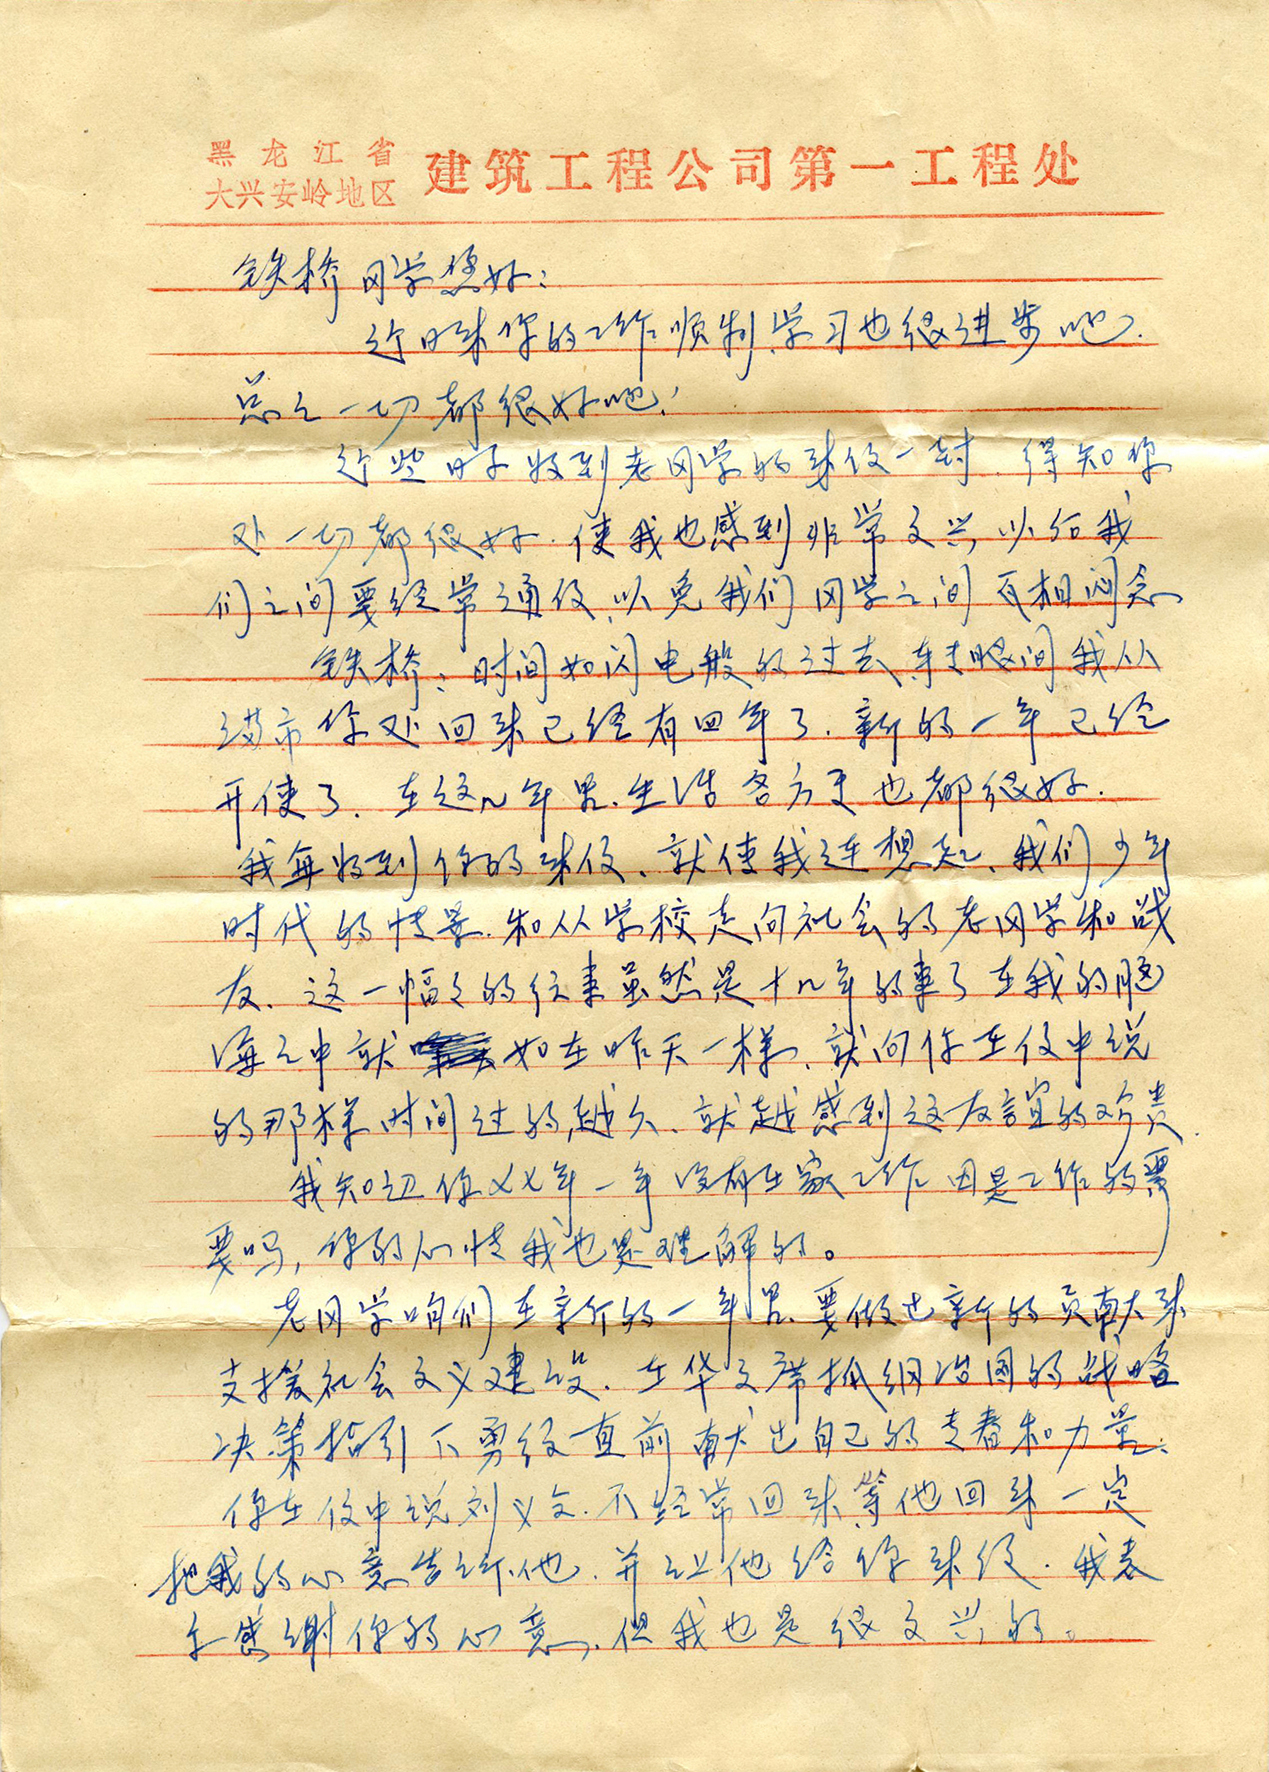 黑龙江省
大兴安岭地区
建筑工程公司第一工程处
铁桥同学您好：
近日来你的工作顺利、学习也很进步吧．
总之一切都很好吧！
近些日子收到老同学的来信一封．得知你
处一切都很好．使我也感到非常高兴以后我
们之间要经常通信、以免我们同学之间互相闷念
铁桥：时间如闪电般的过去、转眼间我从
满市你处回来已经有四年了．新的一年已经
开使了．在这几年里．生活各方面也都很好．
我每收到你的来信、就使我连想起、我们少年
时代的情景．和从学校走向社会的老同学和战
友、这一幅幅的往事虽然是十几年的事了在我的脑
海之中就如在昨天一样、就向你在信中说
的那样时间过的越久、就越感到这友谊的珍贵．
我知道你又七年一年没有在家工作因是工作的需
要吗，你的心情我也是理解的。
老同学咱们在新的一年里、要做出新的贡献来
支援社会主义建设．在华主席抓纲治国的战略
决策指引下勇往直前献出自己的青春和力量．
你在信中说刘义文．不经常回来等他回来一定
把我的心意告诉他．并让他给你来信．我表
示感谢你的心意、但我也是很高兴的。